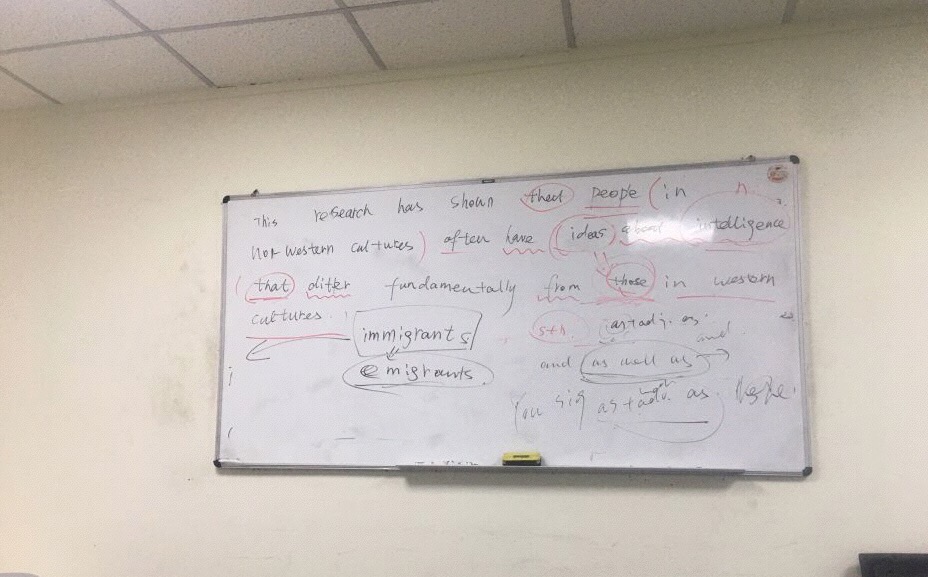 This research has shown that people (in n.
non western cultures) often have (ideas) about intelligence
(that differ fundamentally from those in western
cultures.
immigrants
emigrants.
sth. as+adj. as.
and as well as and
You sig as+adv. as